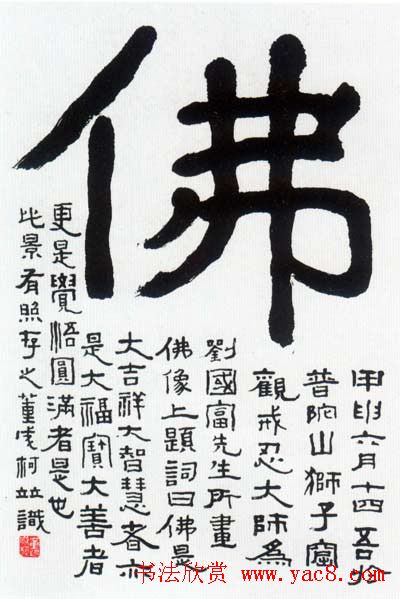 佛
甲申六月十四吾於
普陀山獅子窟
觀戒忍大師為
劉國富先生所畫
佛像上題詞曰佛是
大吉祥大智慧者亦
是大福寶大善者
更是覺悟圓滿者是也
此景有照存之董凌柯並識
书法欣赏 www.yac8.com